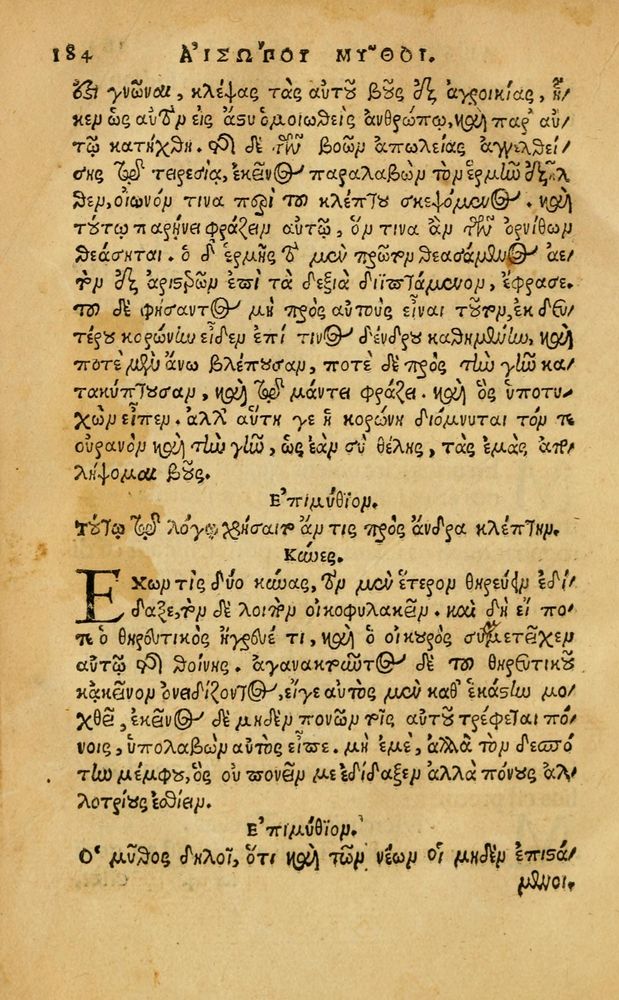 184 ΑἸΣΩΠΟΥ ΜΥ͂ΘΟΙ.
ἐξι γνῶναι, κλέψας τὰς αὐτοῦ βοῦς ἐξ ἀγροικίας, ἧ/
κεν ὡς αὐτὸν εἰς ἄστυ ὁμοιωθεὶς ἀνθρώπῳ, καὶ παρ' αὐ/
τῷ κατήχθη. τῆς δὲ τῶν βοῶν ἀπωλείας ἀγγελθεί/
σης τῷ τειρεσίᾳ, ἐκεῖνος παραλαβὼν τὸν ἑρμῆν ἐξῆλ
θεν, οἰωνόν τινα περὶ τοῦ κλέπτου σκεψόμενος. καὶ
τούτῳ παρῄνει φράζειν αὐτῷ, ὅν τινα ἂν τῶν ὀρνίθων
θεάσηται. ὁ δ' ἑρμῆς τὸ μὲν πρῶτον θεασάμενος ἀε/
τὸν ἐξ ἀριστερῶν ἐπὶ τὰ δεξιὰ διϊπτάμενον, ἔφρασε.
τοῦ δὲ φήσαντος μὴ πρὸς αὐτοὺς εἶναι τοῦτον, ἐκ δευ/
τέρου κορώνην εἶδεν ἐπί τινος δένδρου καθημένην, καὶ
ποτὲ μὲν ἄνω βλέπουσαν, ποτὲ δὲ πρὸς τὴν γῆν κα/
τακύπτουσαν, καὶ τῷ μάντει φράζει. καὶ ὃς ὑποτυ/
χὼν εἶπεν. ἀλλ' αὕτη γε ἡ κορώνη διόμνυται τόν τε
οὐρανὸν καὶ τὴν γῆν, ὡς ἐὰν σὺ θέλῃς, τὰς ἐμὰς ἀπο/
λήψομαι βοῦς.
Ἐπιμύθιον.
Τούτῳ τῷ λόγῳ χρήσαιτο ἄν τις πρὸς ἄνδρα κλέπτην.
Κύνες.
ΕΧων τὶς δύο κύνας, τὸν μὲν ἕτερον θηρεύειν ἐδί/
δαξε, τὸν δὲ λοιπὸν οἰκοφυλακεῖν. καὶ δὴ εἴ πο/
τε ὁ θηρευτικὸς ἤγρευέ τι, καὶ ὁ οἰκουρὸς συμμετεῖχεν
αὐτῷ τῆς θοίνης. ἀγανακτοῦντος δὲ τοῦ θηρευτικοῦ
κἀκεῖνον ὀνειδίζοντος, εἴγε αὐτὸς μὲν καθ' ἑκάστην μο/
χθεῖ, ἐκεῖνος δὲ μηδὲν πονῶν τοῖς αὐτοῦ τρέφεται πό/
νοις, ὑπολαβὼν αὐτὸς εἶπε. μὴ ἐμὲ, ἀλλὰ τὸν δεσπό/
την μέμφου, ὃς οὐ πονεῖν με ἐδίδαξεν ἀλλὰ πόνους ἀλ/
λοτρίους ἐσθίειν.
Ἐπιμύθιον.
Ὁ μῦθος δηλοῖ, ὅτι καὶ τῶν νέων οἱ μηδὲν ἐπιστά/
μενοι.